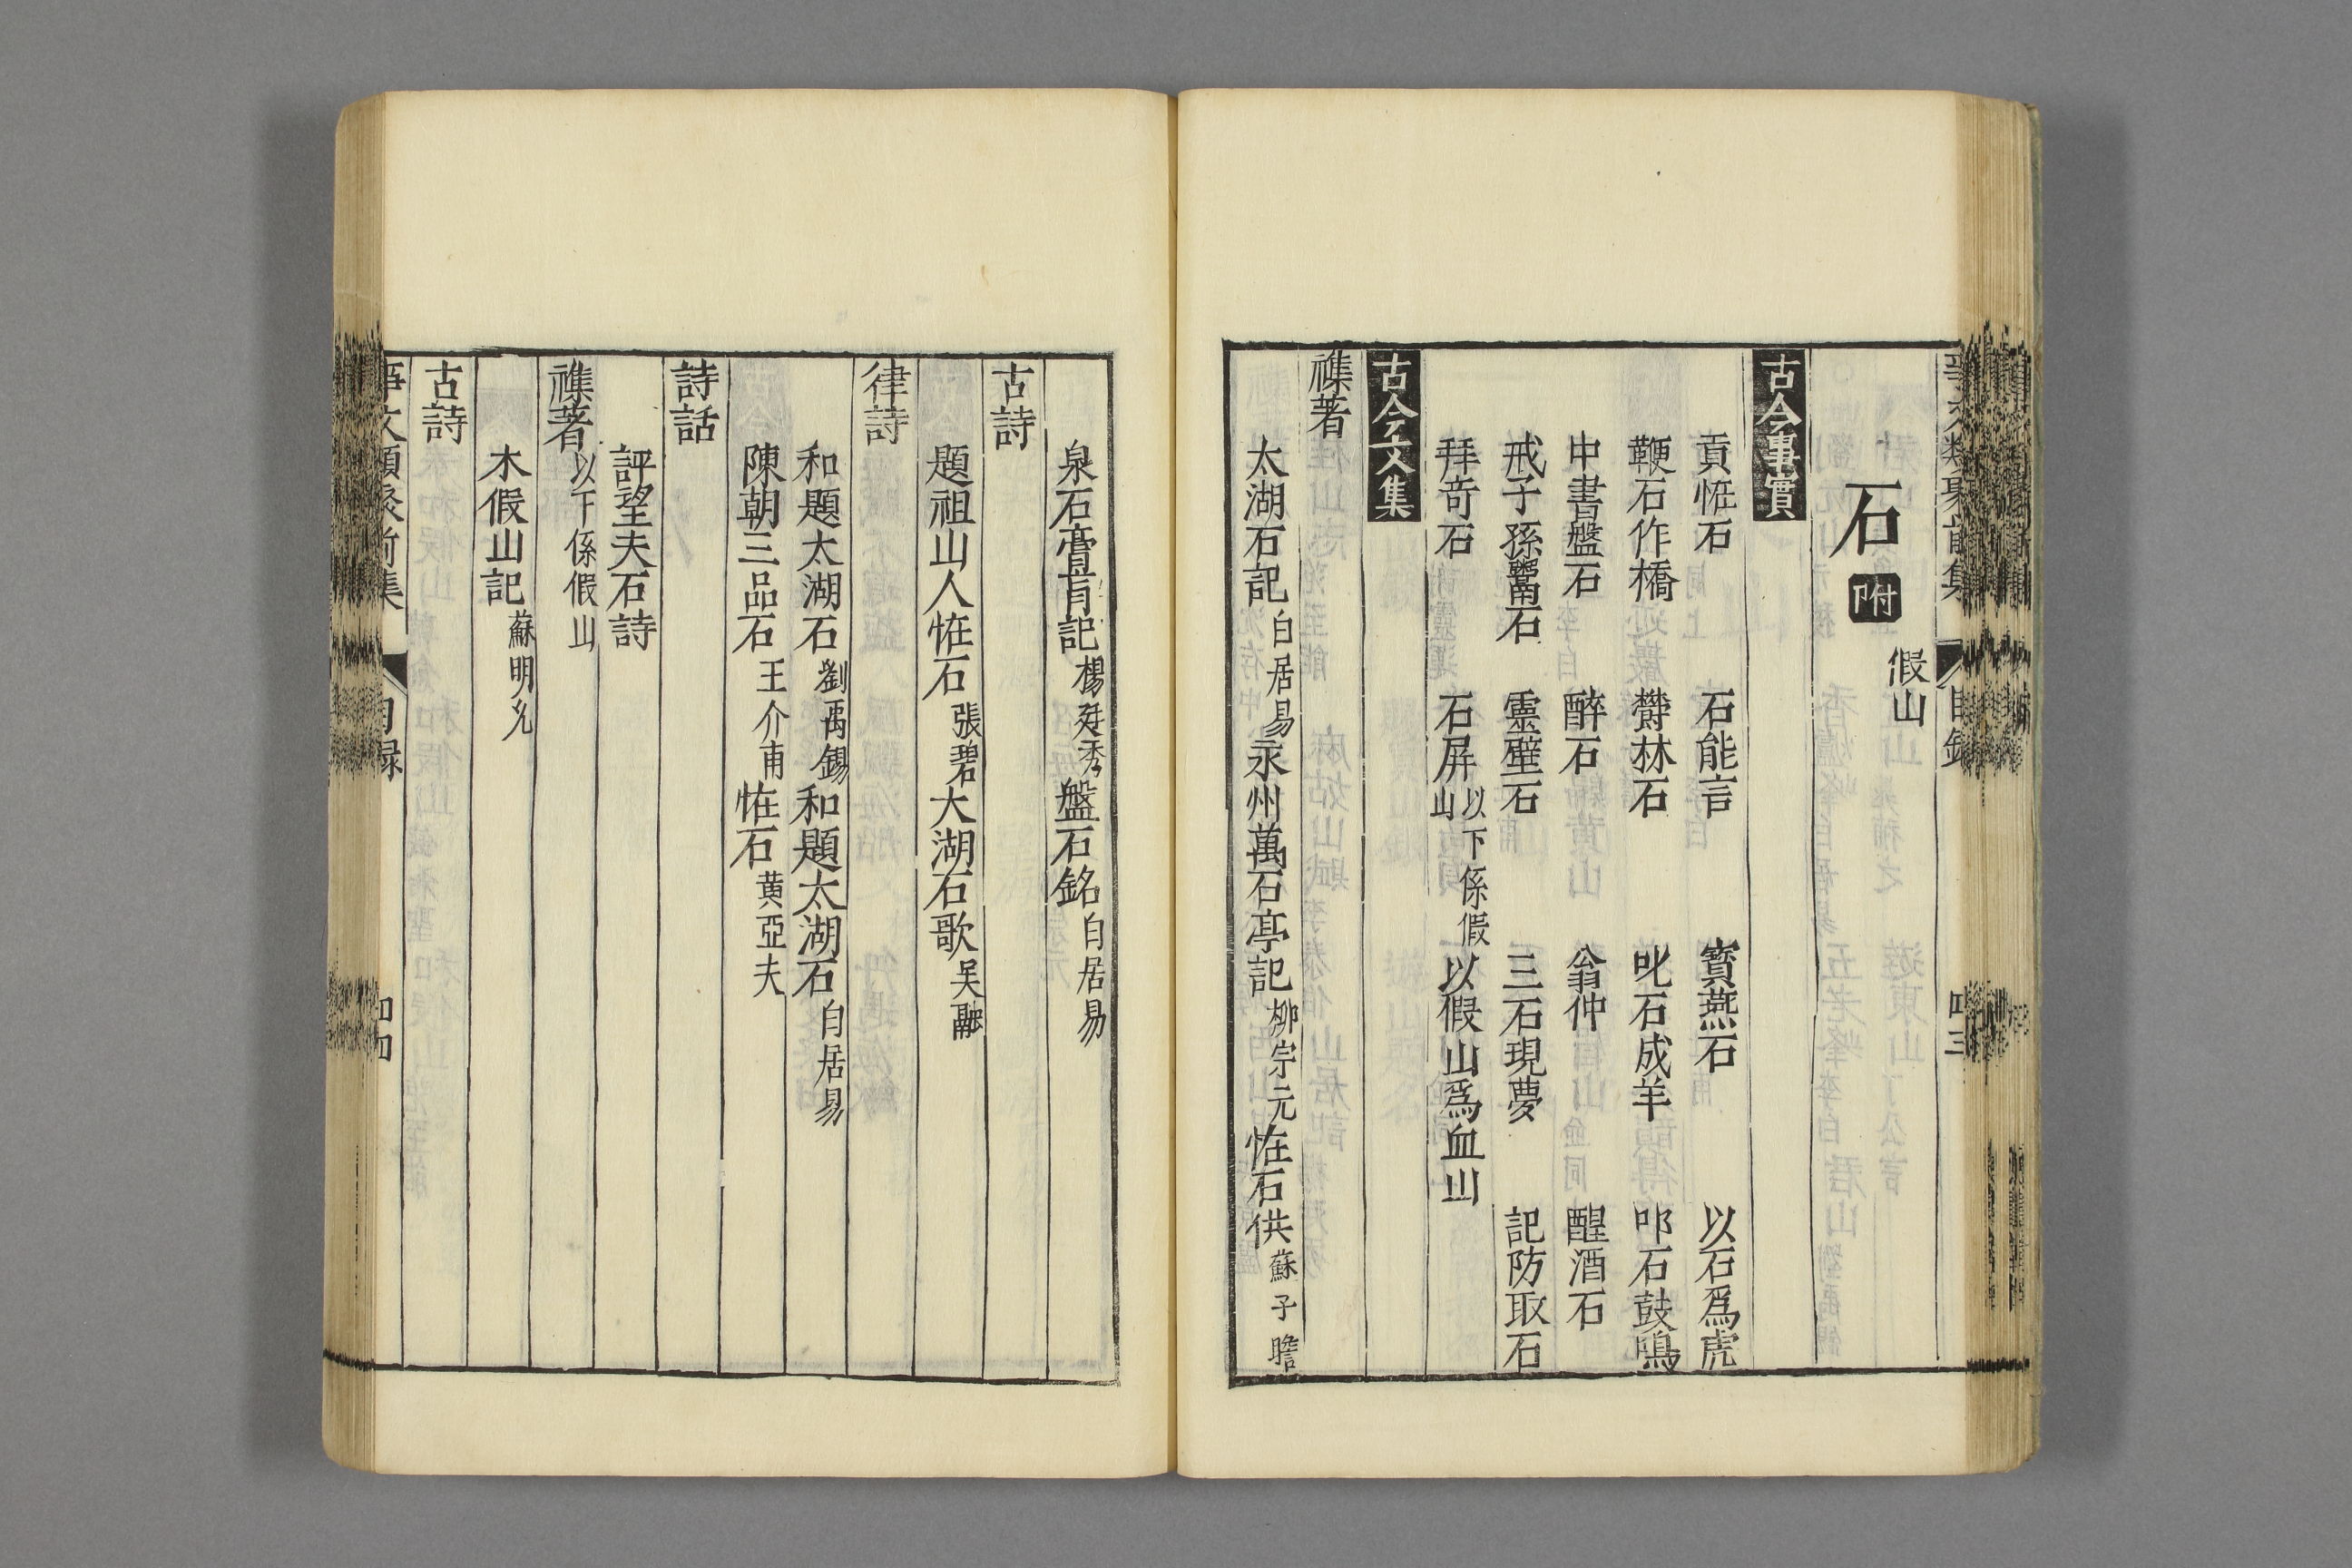 事文類聚前集 目錄 四三
石 附 假山
古今事實
貢恠石 石能言 寳燕石 以石爲虎
鞭石作橋 欎林石 叱石成羊 叩石鼓鳴
中書盤石 醉石 翁仲 醒酒石
戒子孫鬻石 靈璧石 三石現夢 記防取石
拜竒石 石屏 以下係假山 以假山爲血山
古今文集
襍著
太湖石記 白居易 永州萬石亭記 柳宗元 恠石供 蘇子瞻
泉石膏肓記 楊廷秀 盤石銘 白居易
古詩
題祖山人恠石 張碧 大湖石歌 吴融
律詩
和題太湖石 劉禹錫 和題太湖石 白居易
陳朝三品石 王介甫 恠石 黄亞夫
詩話
評望夫石詩
襍著 以下係假山
木假山記 蘇明允
古詩
事文類聚前集 目録